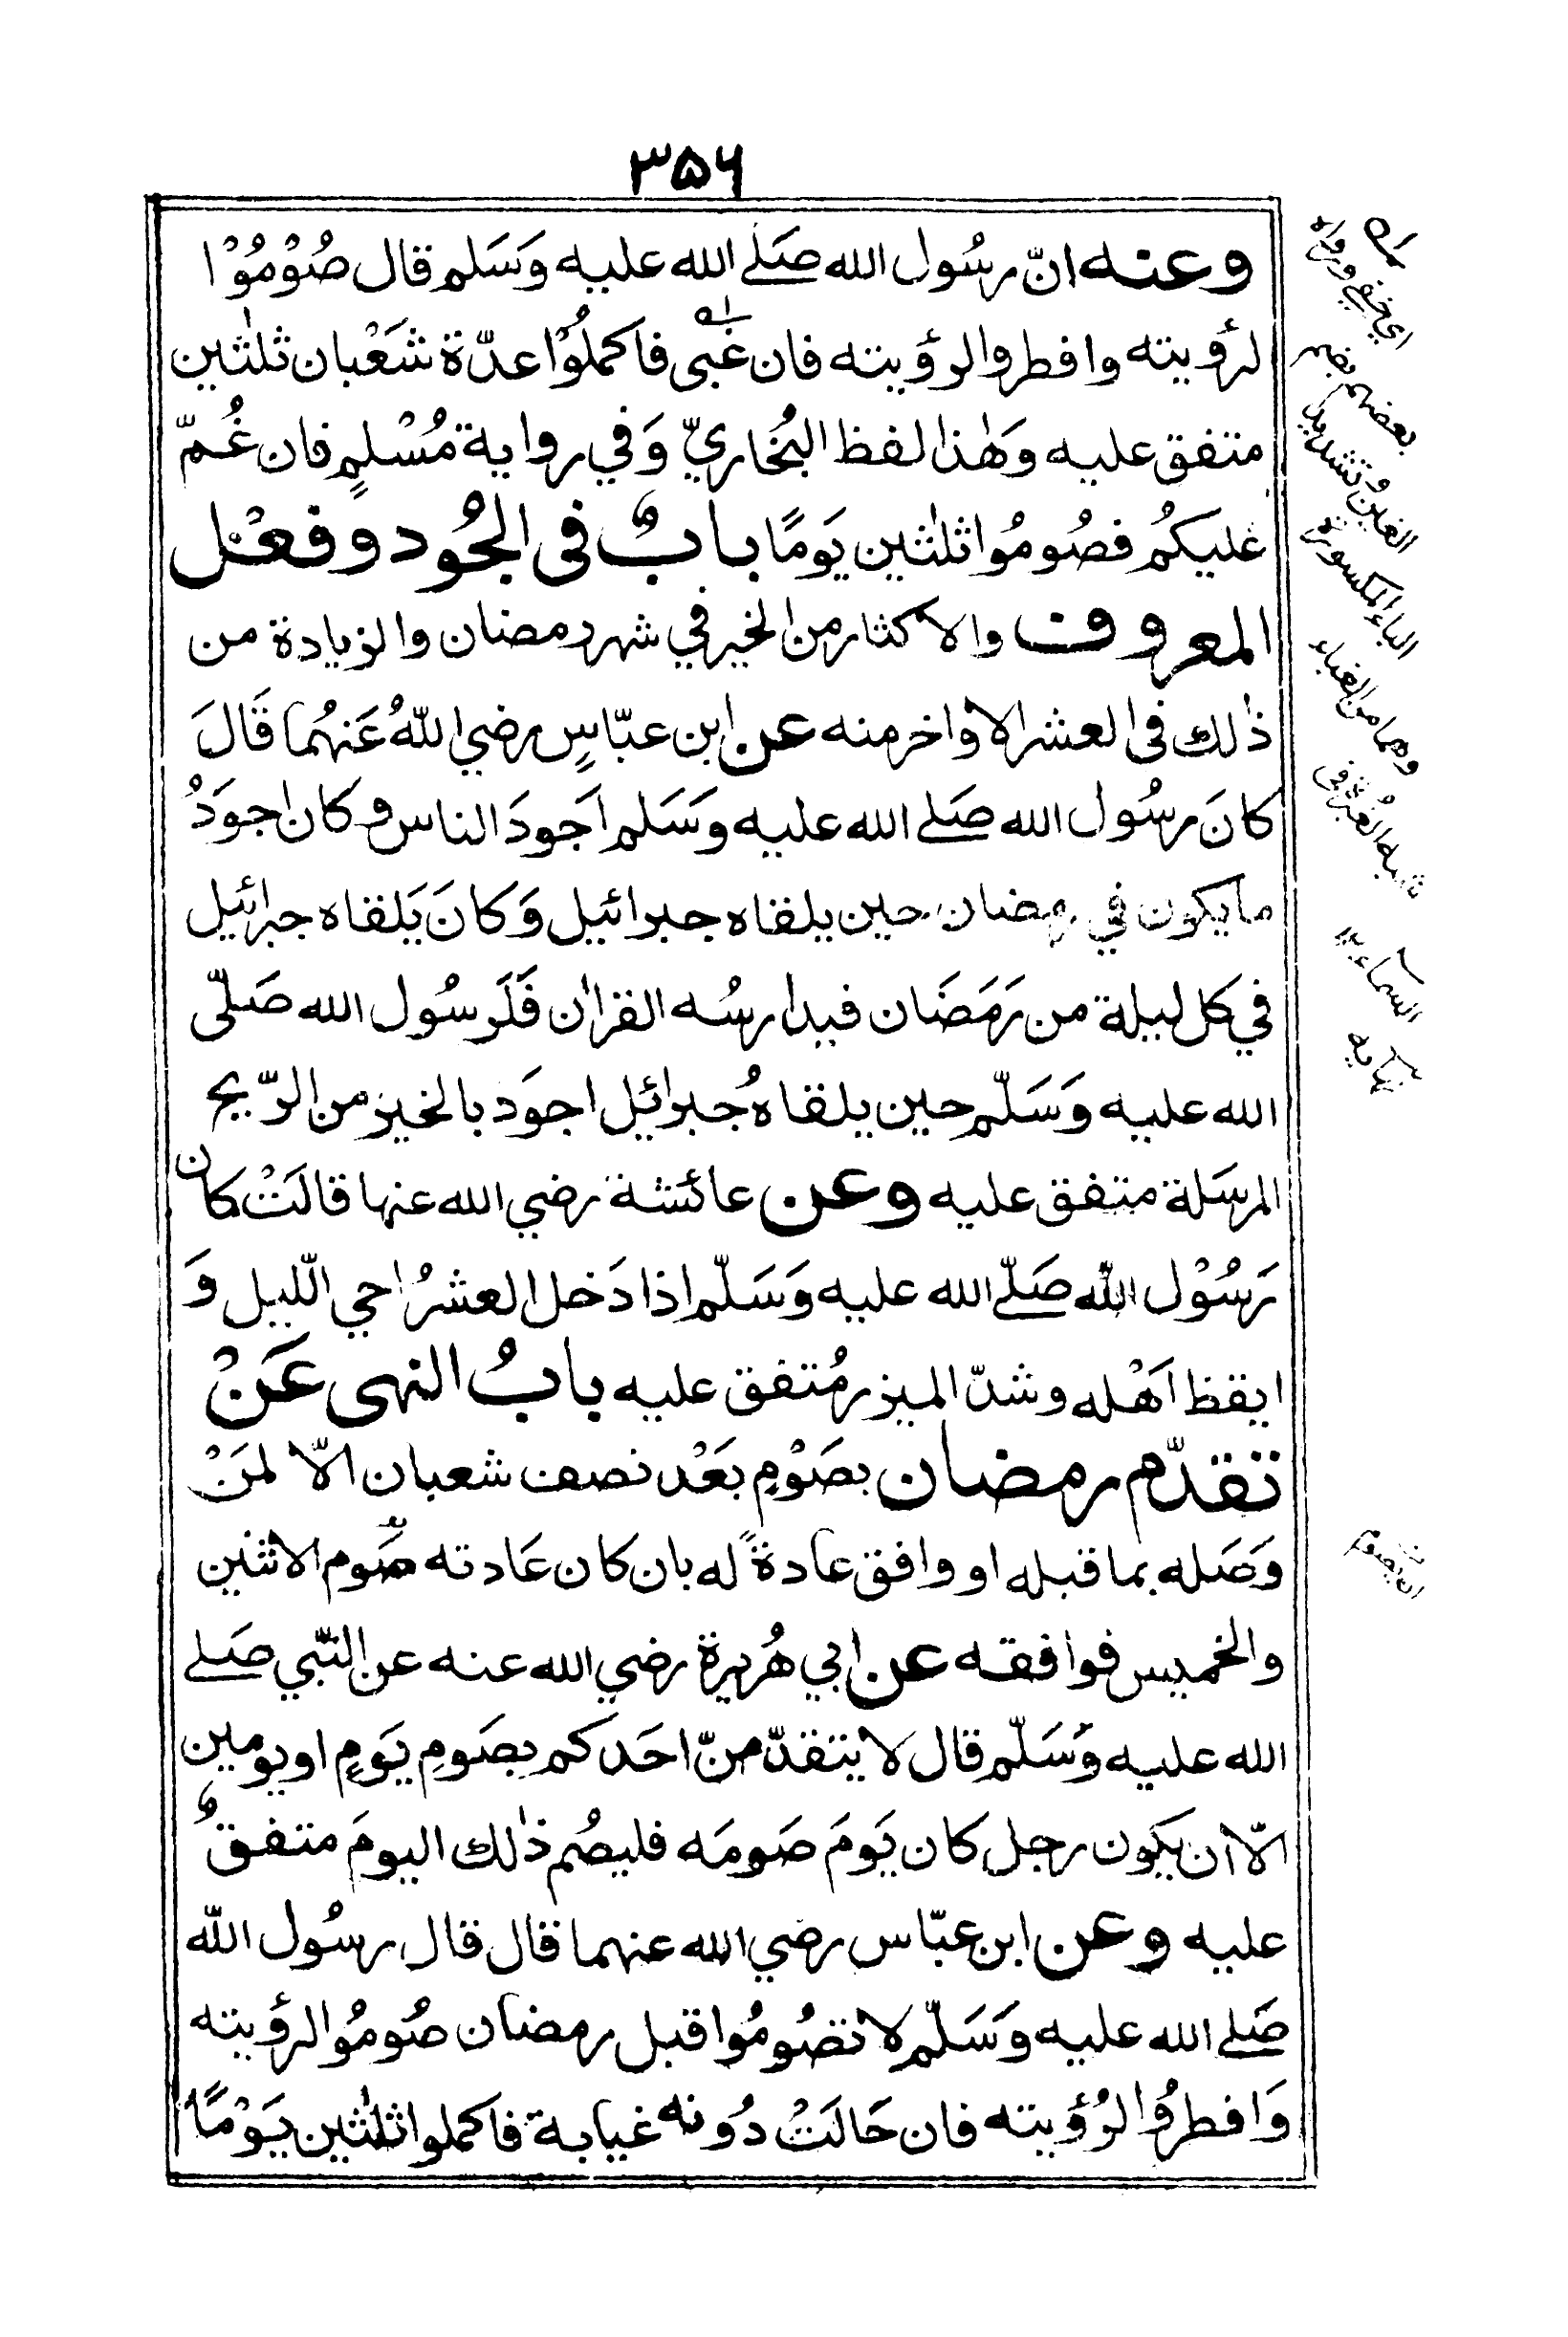 ۳۵۶
وعنه انّ رسُول الله صَلے الله عليه وَسَلم قال صُوْمُوْا
لرؤيته وافطروا لرؤيته فان غَبى فاكملُوْا عدّة شَعْبان ثلٰثين
متفق عليه وَهٰذا لفظ البُخاريّ وَفي رواية مُسْلمٍ فان غُمّ
عليكُم فصُومُوا ثلٰثين يَومًا بابٌ فى الجُود وفعْل
المعروف والاكثار من الخير في شهر رمضان والزيادة من
ذٰلك فى العشر الاواخر منه عن ابن عبّاسٍ رضي اللّهُ عَنهُما قَالَ
كانَ رسُول الله صَلے الله عليه وَسَلم اَجودَ الناس وكان اجوَدُ
ما يكون في رمضان حين يلقاه جبرائيل وَكانَ يَلقاه جبرائيل
في كل ليلة من رَمَضَان فيدارسُه القراٰن فَلَرسُول الله صَلّى
الله عليه وَسَلّم حين يلقاهُ جبرائيل اجوَد بالخير من الرّيح
المرسَلة متفق عليه وعن عائشة رضي الله عنها قالَتْ كان
رَسُوْل اللّه صَلّے الله عليه وَسَلّم اذا دَخل العشرُ احي اللّيل وَ
ايقظ اَهْله وشدّ الميزر مُتفق عليه بابُ النهى عَنْ
تقدّم رمضان بصَوْمٍ بَعْد نصف شعبان الّا لمَنْ
وَصَله بما قبله او وافق عادةً له بان كان عَادته صَوم الاثنين
والخميس فوافقه عن ابي هُريرة رضي الله عنه عن النّبي صَلے
الله عليه وَسَلّم قال لا يتقدّمنّ احَدكم بصَومِ يَومٍ او يومين
الّا ان يكون رجل كان يَومَ صَومَه فليصُم ذٰلك اليومَ متفقٌ
عليه وعن ابن عبّاس رضي الله عنهما قال قال رسُول اللّه
صَلے الله عليه وَسَلّم لا تصُومُوا قبل رمضان صُومُوا لرؤيته
وَافطرُوا لرُؤيته فان حَالَتْ دُونه غيابة فاكملوا ثلٰثين يَوْمًا
اي خفي ورواه
بعضهم بضم
الغين وتشديد
الباء المكسورة
وهما من الغباء
شبه الغُبرة في
السماء ۱۲
نهايه